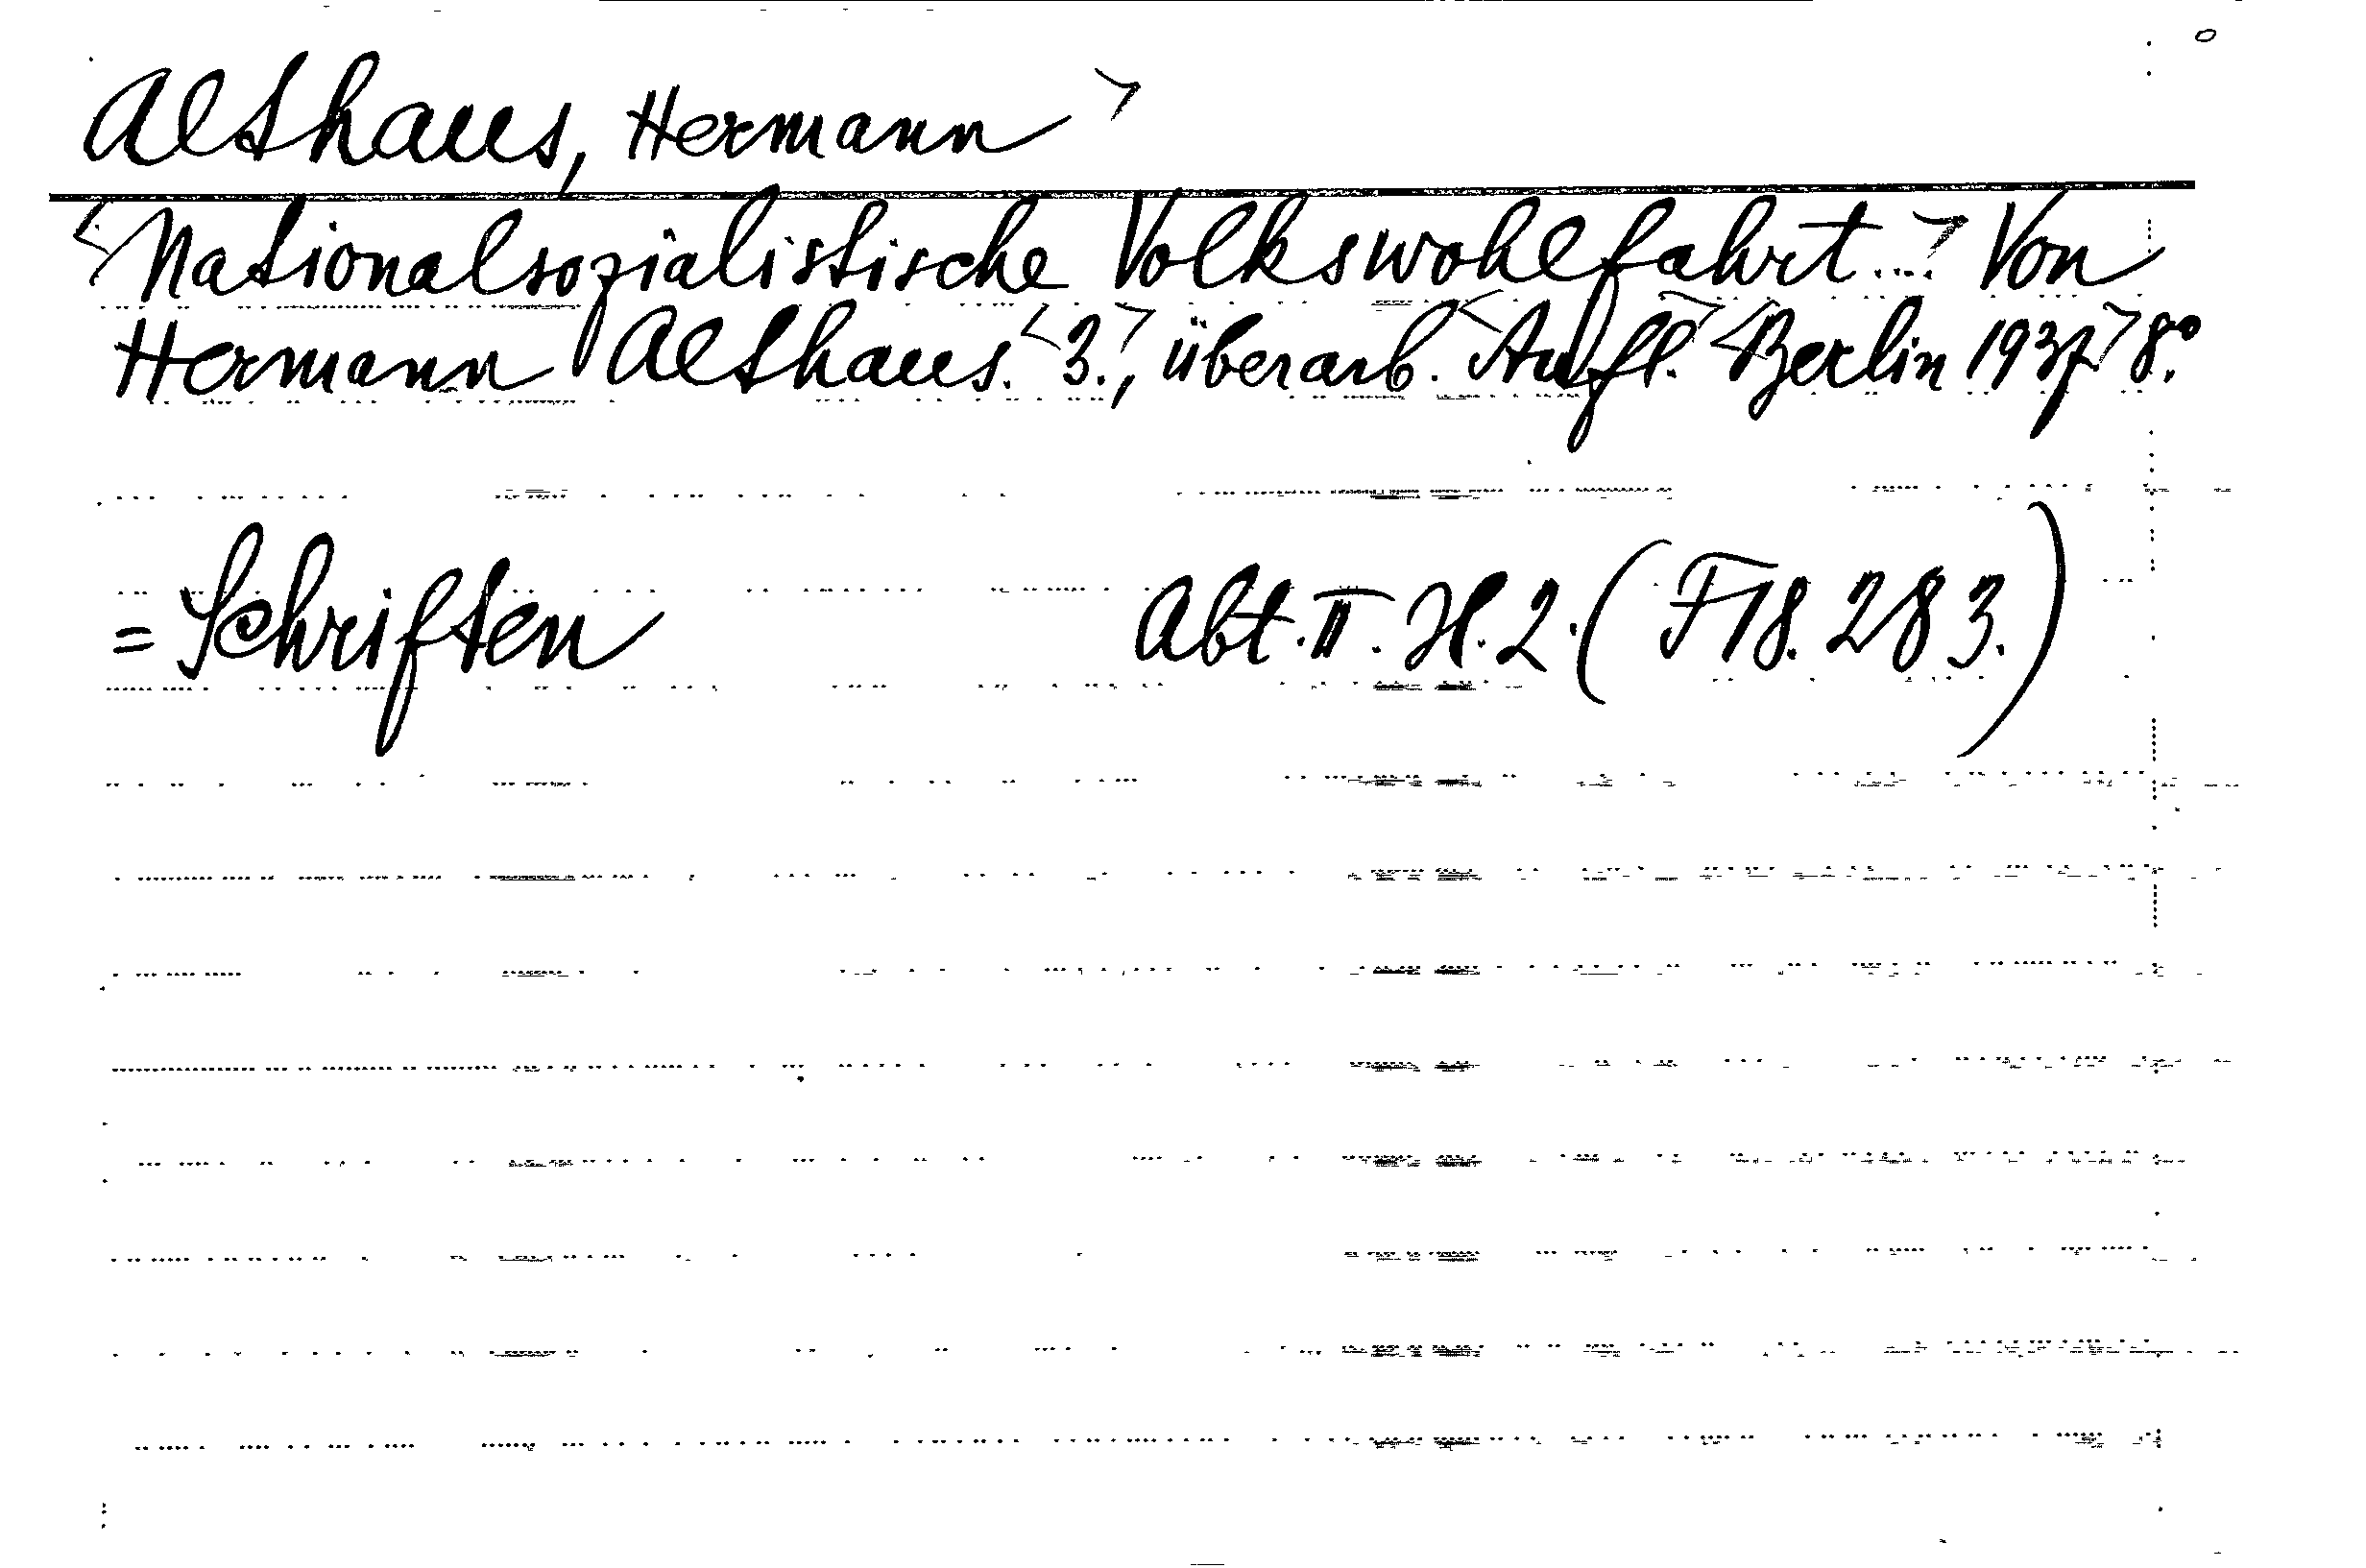 Althaus, Hermann>
<Nationalsozialistische Volkswohlfahrt...> Von
Hermann Althaus. <3.>, überarb. <Aufl.> <Berlin 1937> 8°.
= Schriften Abt. II. H. 2. (F 18. 283.)